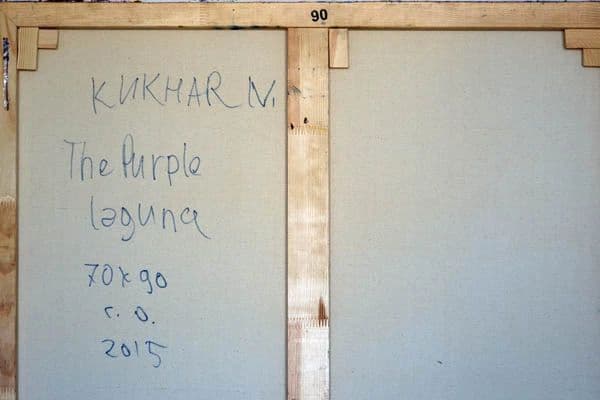 90
KUKHAR N.
The Purple
laguna
70x90
r. o.
2015